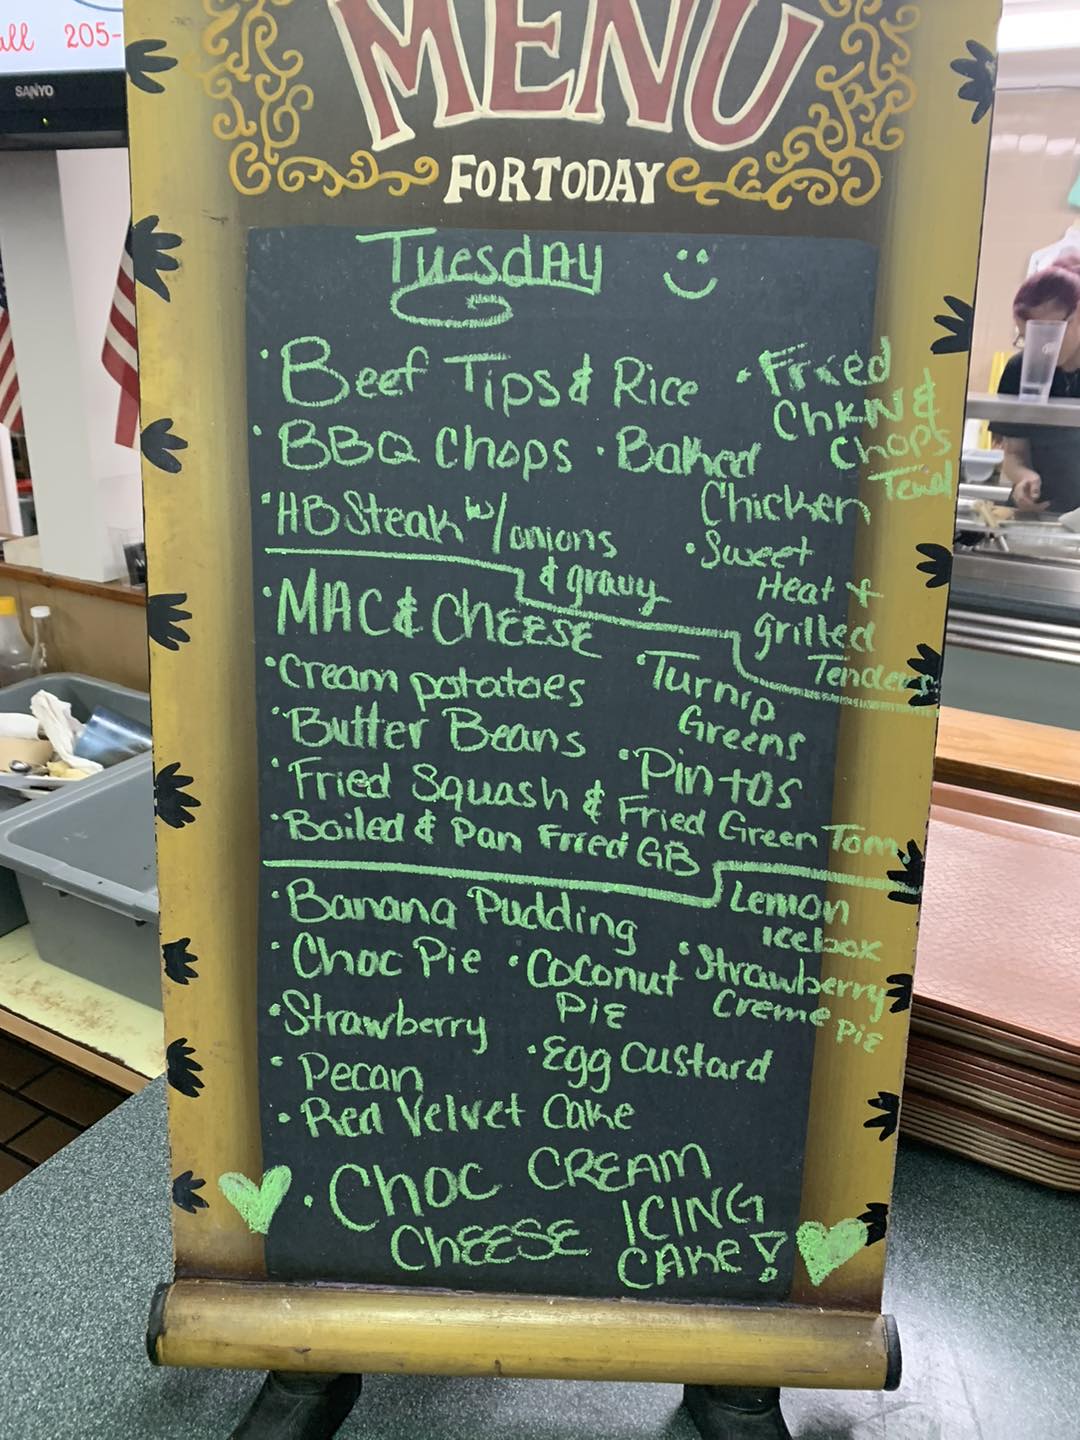 all 205-
SANYO
MENU
FOR TODAY
Tuesday
· Beef Tips & Rice
· BBQ Chops
· HB Steak w/ onions
& gravy
· Fried
Chkn &
Chops
· Baked
Chicken
· Sweet
Heat &
grilled
Tenders
· MAC & CHEESE
· Cream potatoes
· Butter Beans
· Fried Squash & Fried Green Tom.
· Boiled & Pan Fried GB
· Turnip
Greens
· Pintos
· Banana Pudding
· Choc Pie
· Strawberry
· Pecan
· Red Velvet Cake
· Coconut
Pie
· Egg Custard
Lemon
Icebox
· Strawberry
Creme Pie
· Choc CREAM
CHEESE ICING
CAKE!